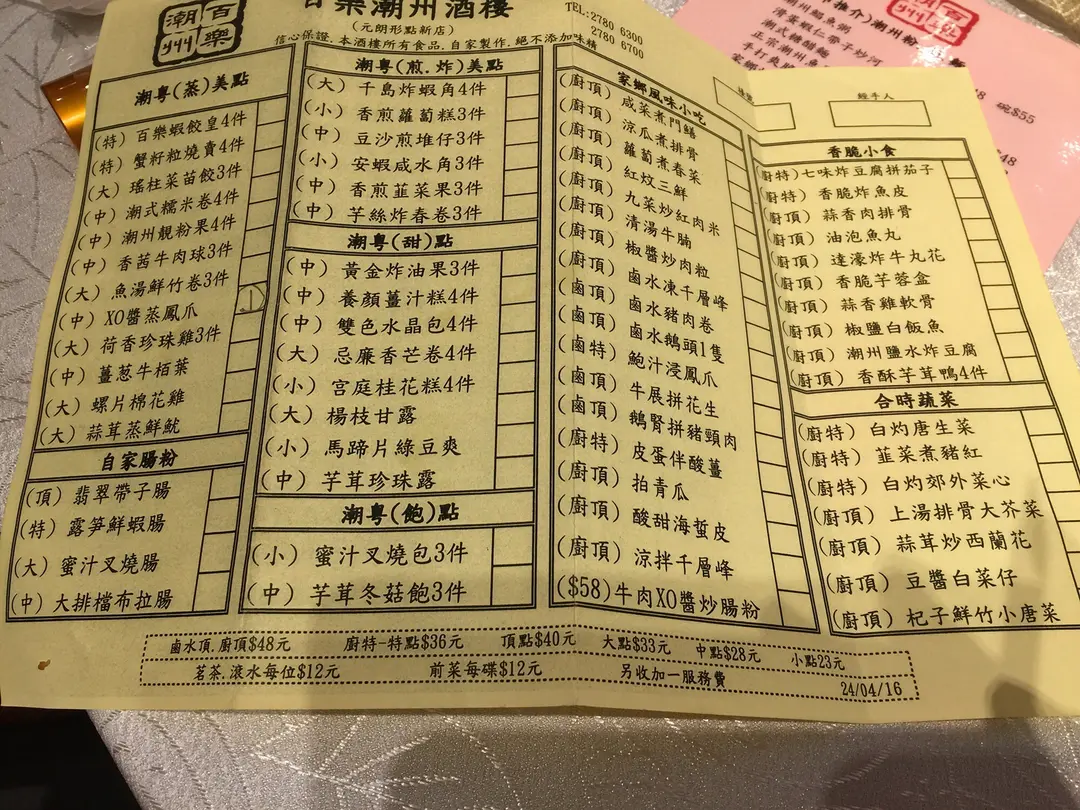 百樂潮州
百樂潮州酒樓
(元朗形點新店)
信心保證.本酒樓所有食品.自家製作.絕不添加味精
TEL:2780 6300
2780 6700
潮粵(蒸)美點
(特) 百樂蝦餃皇4件
(特) 蟹籽粒燒賣4件
(大) 瑤柱菜苗餃3件
(中) 潮式糯米卷4件
(中) 潮州靚粉果4件
(中) 香茜牛肉球3件
(大) 魚湯鮮竹卷3件
(中) XO醬蒸鳳爪
(大) 荷香珍珠雞3件
(中) 薑葱牛栢葉
(大) 螺片棉花雞
(大) 蒜茸蒸鮮魷
自家腸粉
(頂) 翡翠帶子腸
(特) 露笋鮮蝦腸
(大) 蜜汁叉燒腸
(中) 大排檔布拉腸
潮粵(煎.炸)美點
(大) 千島炸蝦角4件
(小) 香煎蘿蔔糕3件
(中) 豆沙煎堆仔3件
(小) 安蝦咸水角3件
(中) 香煎韮菜果3件
(中) 芋絲炸春卷3件
潮粵(甜)點
(中) 黃金炸油果3件
(中) 養顏薑汁糕4件
(中) 雙色水晶包4件
(大) 忌廉香芒卷4件
(小) 宮庭桂花糕4件
(大) 楊枝甘露
(小) 馬蹄片綠豆爽
(中) 芋茸珍珠露
潮粵(飽)點
(小) 蜜汁叉燒包3件
(中) 芋茸冬菇飽3件
家鄉風味小吃
(廚頂) 咸菜煮門鱔
(廚頂) 涼瓜煮排骨
(廚頂) 蘿蔔煮春菜
(廚頂) 紅炆三鮮
(廚頂) 九菜炒紅肉米
(廚頂) 清湯牛腩
(廚頂) 椒醬炒肉粒
(鹵頂) 鹵水凍千層峰
(鹵頂) 鹵水豬肉卷
(鹵頂) 鹵水鵝頭1隻
(鹵特) 鮑汁浸鳳爪
(鹵頂) 牛展拼花生
(鹵頂) 鵝腎拼豬頸肉
(廚特) 皮蛋伴酸薑
(廚頂) 拍青瓜
(廚頂) 酸甜海蜇皮
(廚頂) 涼拌千層峰
($58)牛肉XO醬炒腸粉
經手人
香脆小食
(廚特)七味炸豆腐拼茄子
(廚特) 香脆炸魚皮
(廚頂) 蒜香肉排骨
(廚頂) 油泡魚丸
(廚頂) 達濠炸牛丸花
(廚頂) 香脆芋蓉盒
(廚頂) 蒜香雞軟骨
(廚頂) 椒鹽白飯魚
(廚頂) 潮州鹽水炸豆腐
(廚頂) 香酥芋茸鴨4件
合時蔬菜
(廚特) 白灼唐生菜
(廚特) 韮菜煮豬紅
(廚特) 白灼郊外菜心
(廚頂) 上湯排骨大芥菜
(廚頂) 蒜茸炒西蘭花
(廚頂) 豆醬白菜仔
(廚頂) 杞子鮮竹小唐菜
鹵水頂.廚頂$48元 廚特-特點$36元 頂點$40元 大點$33元 中點$28元 小點23元
茗茶.滾水每位$12元 前菜每碟$12元 另收加一服務費
24/04/16
碗$55